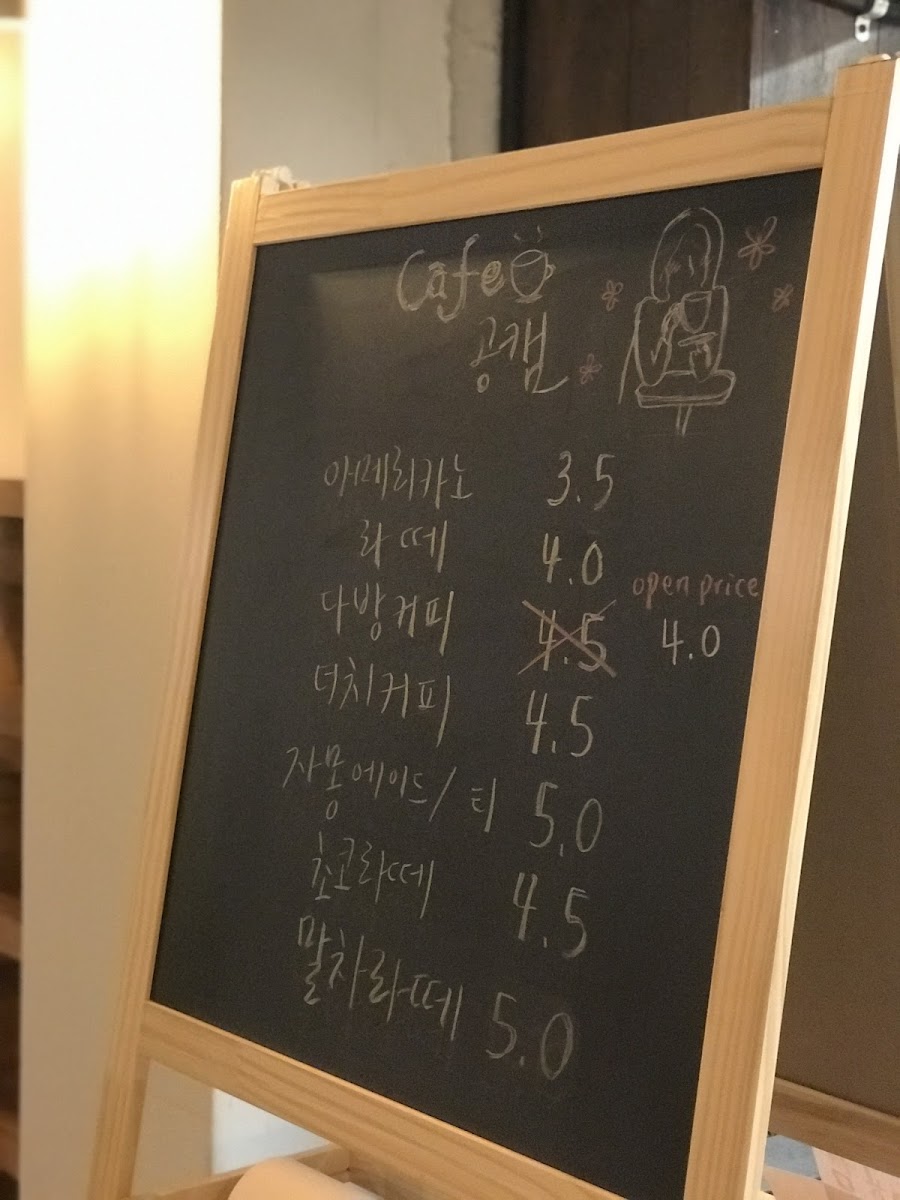 Cafe
공캠
아메리카노 3.5
라떼 4.0
open price
다방커피 4.5 4.0
더치커피 4.5
자몽에이드/티 5.0
초코라떼 4.5
말차라떼 5.0